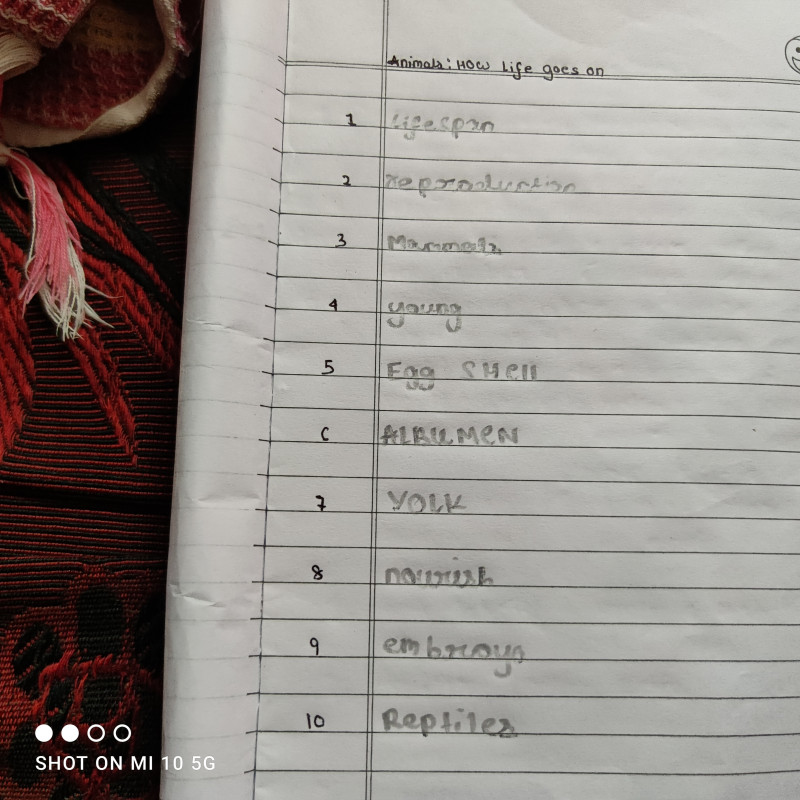 Animals: How Life goes on
1 Lifespan
2 reproduction
3 Mammals
4 young
5 Egg SHell
6 ALBUMeN
7 YOLK
8 nourish
9 embroyo
10 Reptiles
SHOT ON MI 10 5G